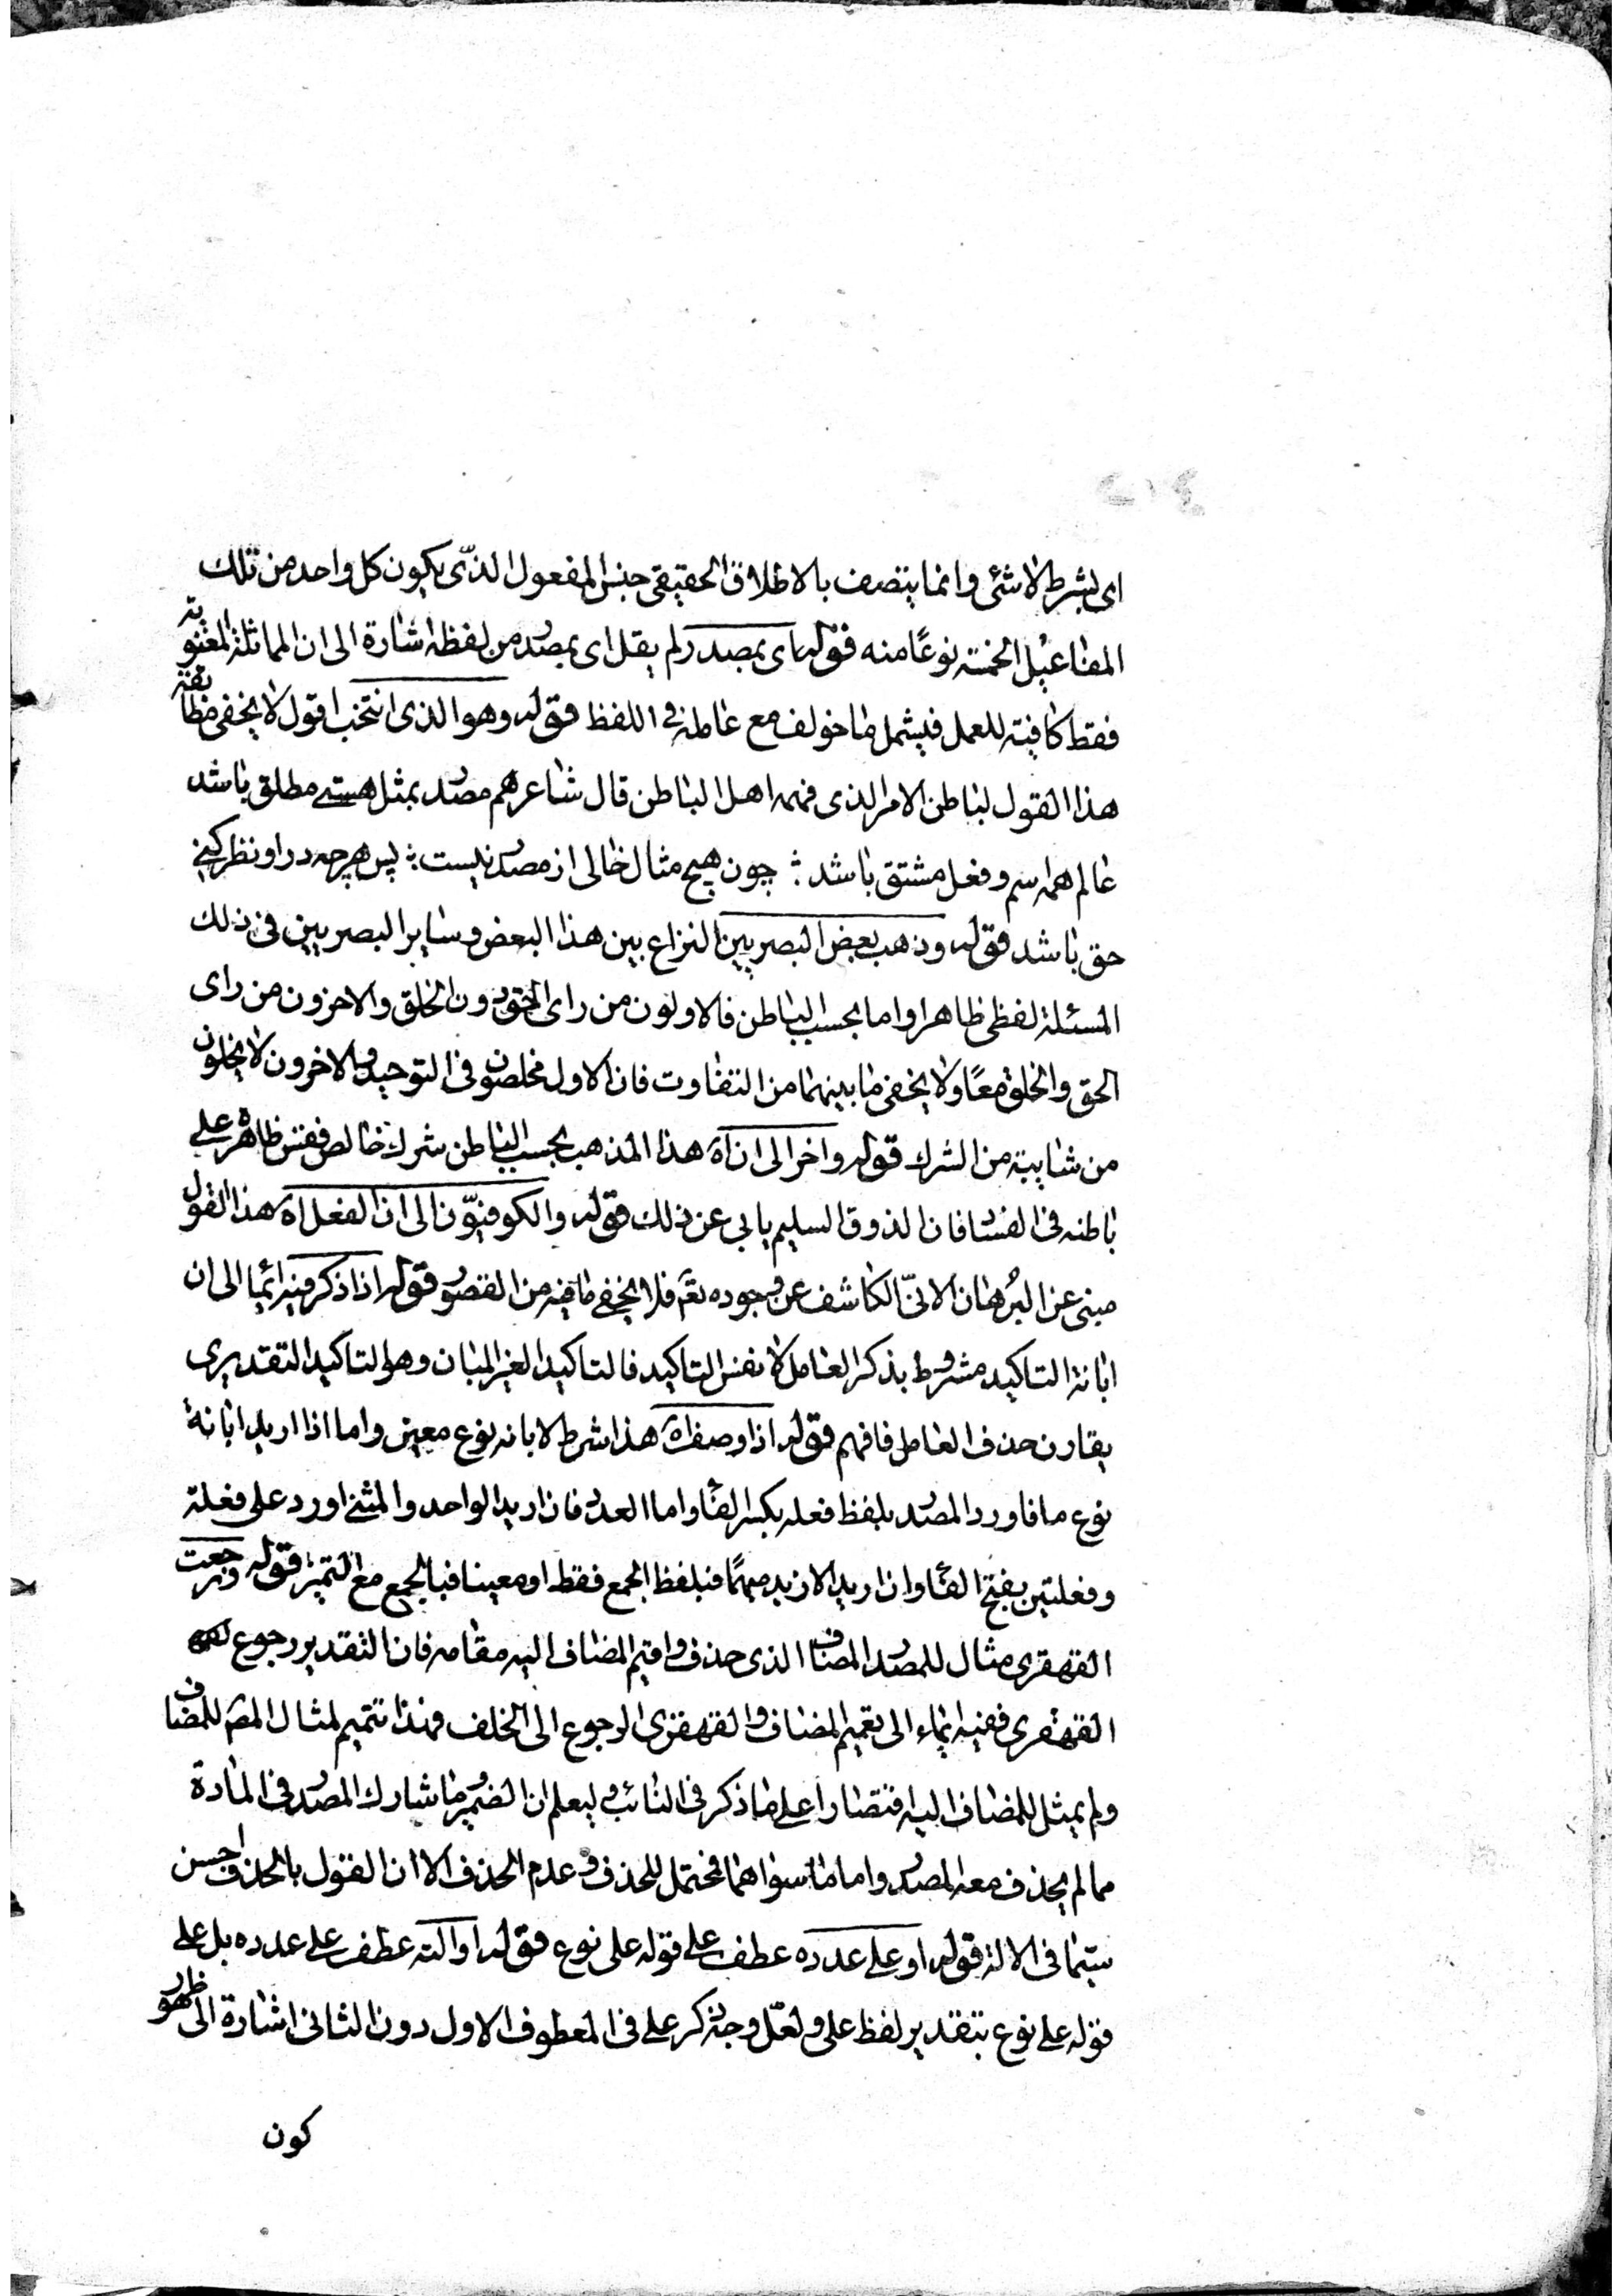 اى بشرط لا شئ وانما يتصف بالاطلاق الحقيقى جنس المفعول الذى يكون كل واحد من تلك
المفاعيل الخمسة نوعًا منه قوله اى بمصدر لم يقل اى بمصدر من لفظه اشارة الى ان المماثلة المعنوية
فقط كافية للعمل فيشمل ما خولف مع عامله فى اللفظ قوله وهو الذى انتخب اقول لا يخفى مطابقة
هذا القول لباطن الامر الذى فهمه اهل الباطن قال شاعرهم مصدر بمثل هستے مطلق باشد
عالم همه اسم وفعل مشتق باشد ؛ چون هیچ مثال خالى از مصدر نیست ؛ پس هرچه در او نظر كنے
حق باشد قوله وذهب بعض البصريين النزاع بين هذا البعض وساير البصريين فى ذلك
المسئلة لفظى ظاهرا واما بحسب الباطن فالاولون من راى الحق دون الخلق والاخرون من راى
الحق والخلق معًا ولا يخفى ما بينهما من التفاوت فان الاول مخلصون فى التوحيد والاخرون لا يخلون
من شايبة من الشرك قوله واخر الى ان اه هذا المذهب بحسب الباطن شرك خالص فقس ظاهره على
باطنه فى الفساد فان الذوق السليم يابى عن ذلك قوله والكوفيّون الى ان الفعل اه هذا القول
مبنى عن البرهان الانّى الكاشف عن وجوده تعم فلا يخفى ما فيه من القصور قوله اذا ذكر فيه ايما الى ان
ابانة التاكيد مشروط بذكر العامل لا نفس التاكيد فالتاكيد الغير المبان وهو التاكيد التقديرى
يقارن حذف العامل فافهم قوله اذا وصف اه هذا شرط لابانه نوع معين واما اذا اريد ابانة
نوع ما فاورد المصدر بلفظ فعله بكسر الفاء واما العدد فان اريد الواحد والمثنى اورد على فعلة
وفعلتين بفتح الفاء وان اريد الازيد مبهمًا فبلفظ الجمع فقط او معينا فبالجمع مع التميز قوله ورجعت
القهقرى مثال للمصدر المضاف الذى حذف واقيم المضاف اليه مقامه فان التقدير رجوع
القهقرى ففيه ايماء الى تعميم المضاف والقهقرى الرجوع الى الخلف فهذا تتميم لمثال المص للمضاف
ولم يمثل للمضاف اليه اقتصارا على ما ذكر فى النائب وليعلم ان الضمير وما شارك المصدر فى المادة
مما لم يحذف معه المصدر واما ما سواهما فمحتمل للحذف وعدم الحذف الا ان القول بالحذف احسن
سيما فى الالة قوله او على عدده عطف على قوله على نوع قوله او الته عطف على عدده بل على
قوله على نوع بتقدير لفظ على ولعلّ وجه ذكر على فى المعطوف الاول دون الثانى اشارة الى ظهور
كون